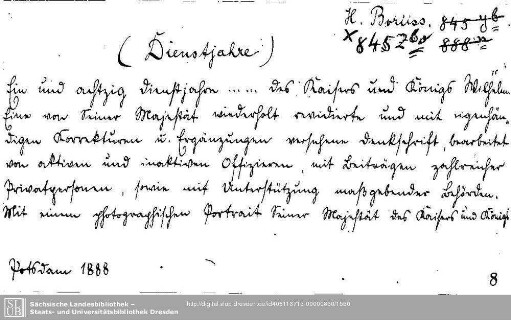 H. Boruss. 845 yb
x 8452 bd 888 n
(Dienstjahre)
Ein und achtzig Dienstjahre ... ... des Kaisers und Königs Wilhelm
Eine von Seiner Majestät wiederholt revidirte und mit eigenhän-
digen Korrekturen u. Ergänzungen versehene Denkschrift, bearbeitet
von aktiven und inaktiven Offizieren, mit Beiträgen zahlreicher
Privatpersonen, sowie mit Unterstützung maßgebender Behörden.
Mit einem photographischen Portrait Seiner Majestät des Kaisers und Königs
Potsdam 1888
8
SLUB
Sächsische Landesbibliothek –
Staats- und Universitätsbibliothek Dresden